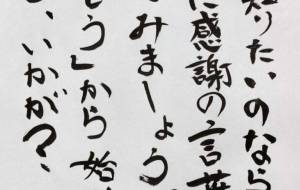 知りたいのなら
に感謝の言葉
てみましょう
とう」から始
、いかが？